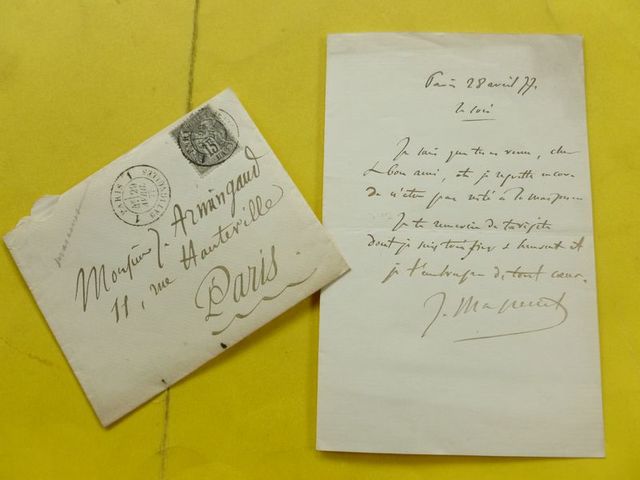 Paris 28 avril 77.
le soir
Je sais que tu es venu, cher
& bon ami, et je regrette encore
de n'être pas resté à la maison
Je te remercie de ta
dont je suis fier & heureux et
je t'embrasse de tout cœur.
J. Massenet
PARIS 1
Monsieur J. Armingaud
11, rue Hauteville
Paris
15